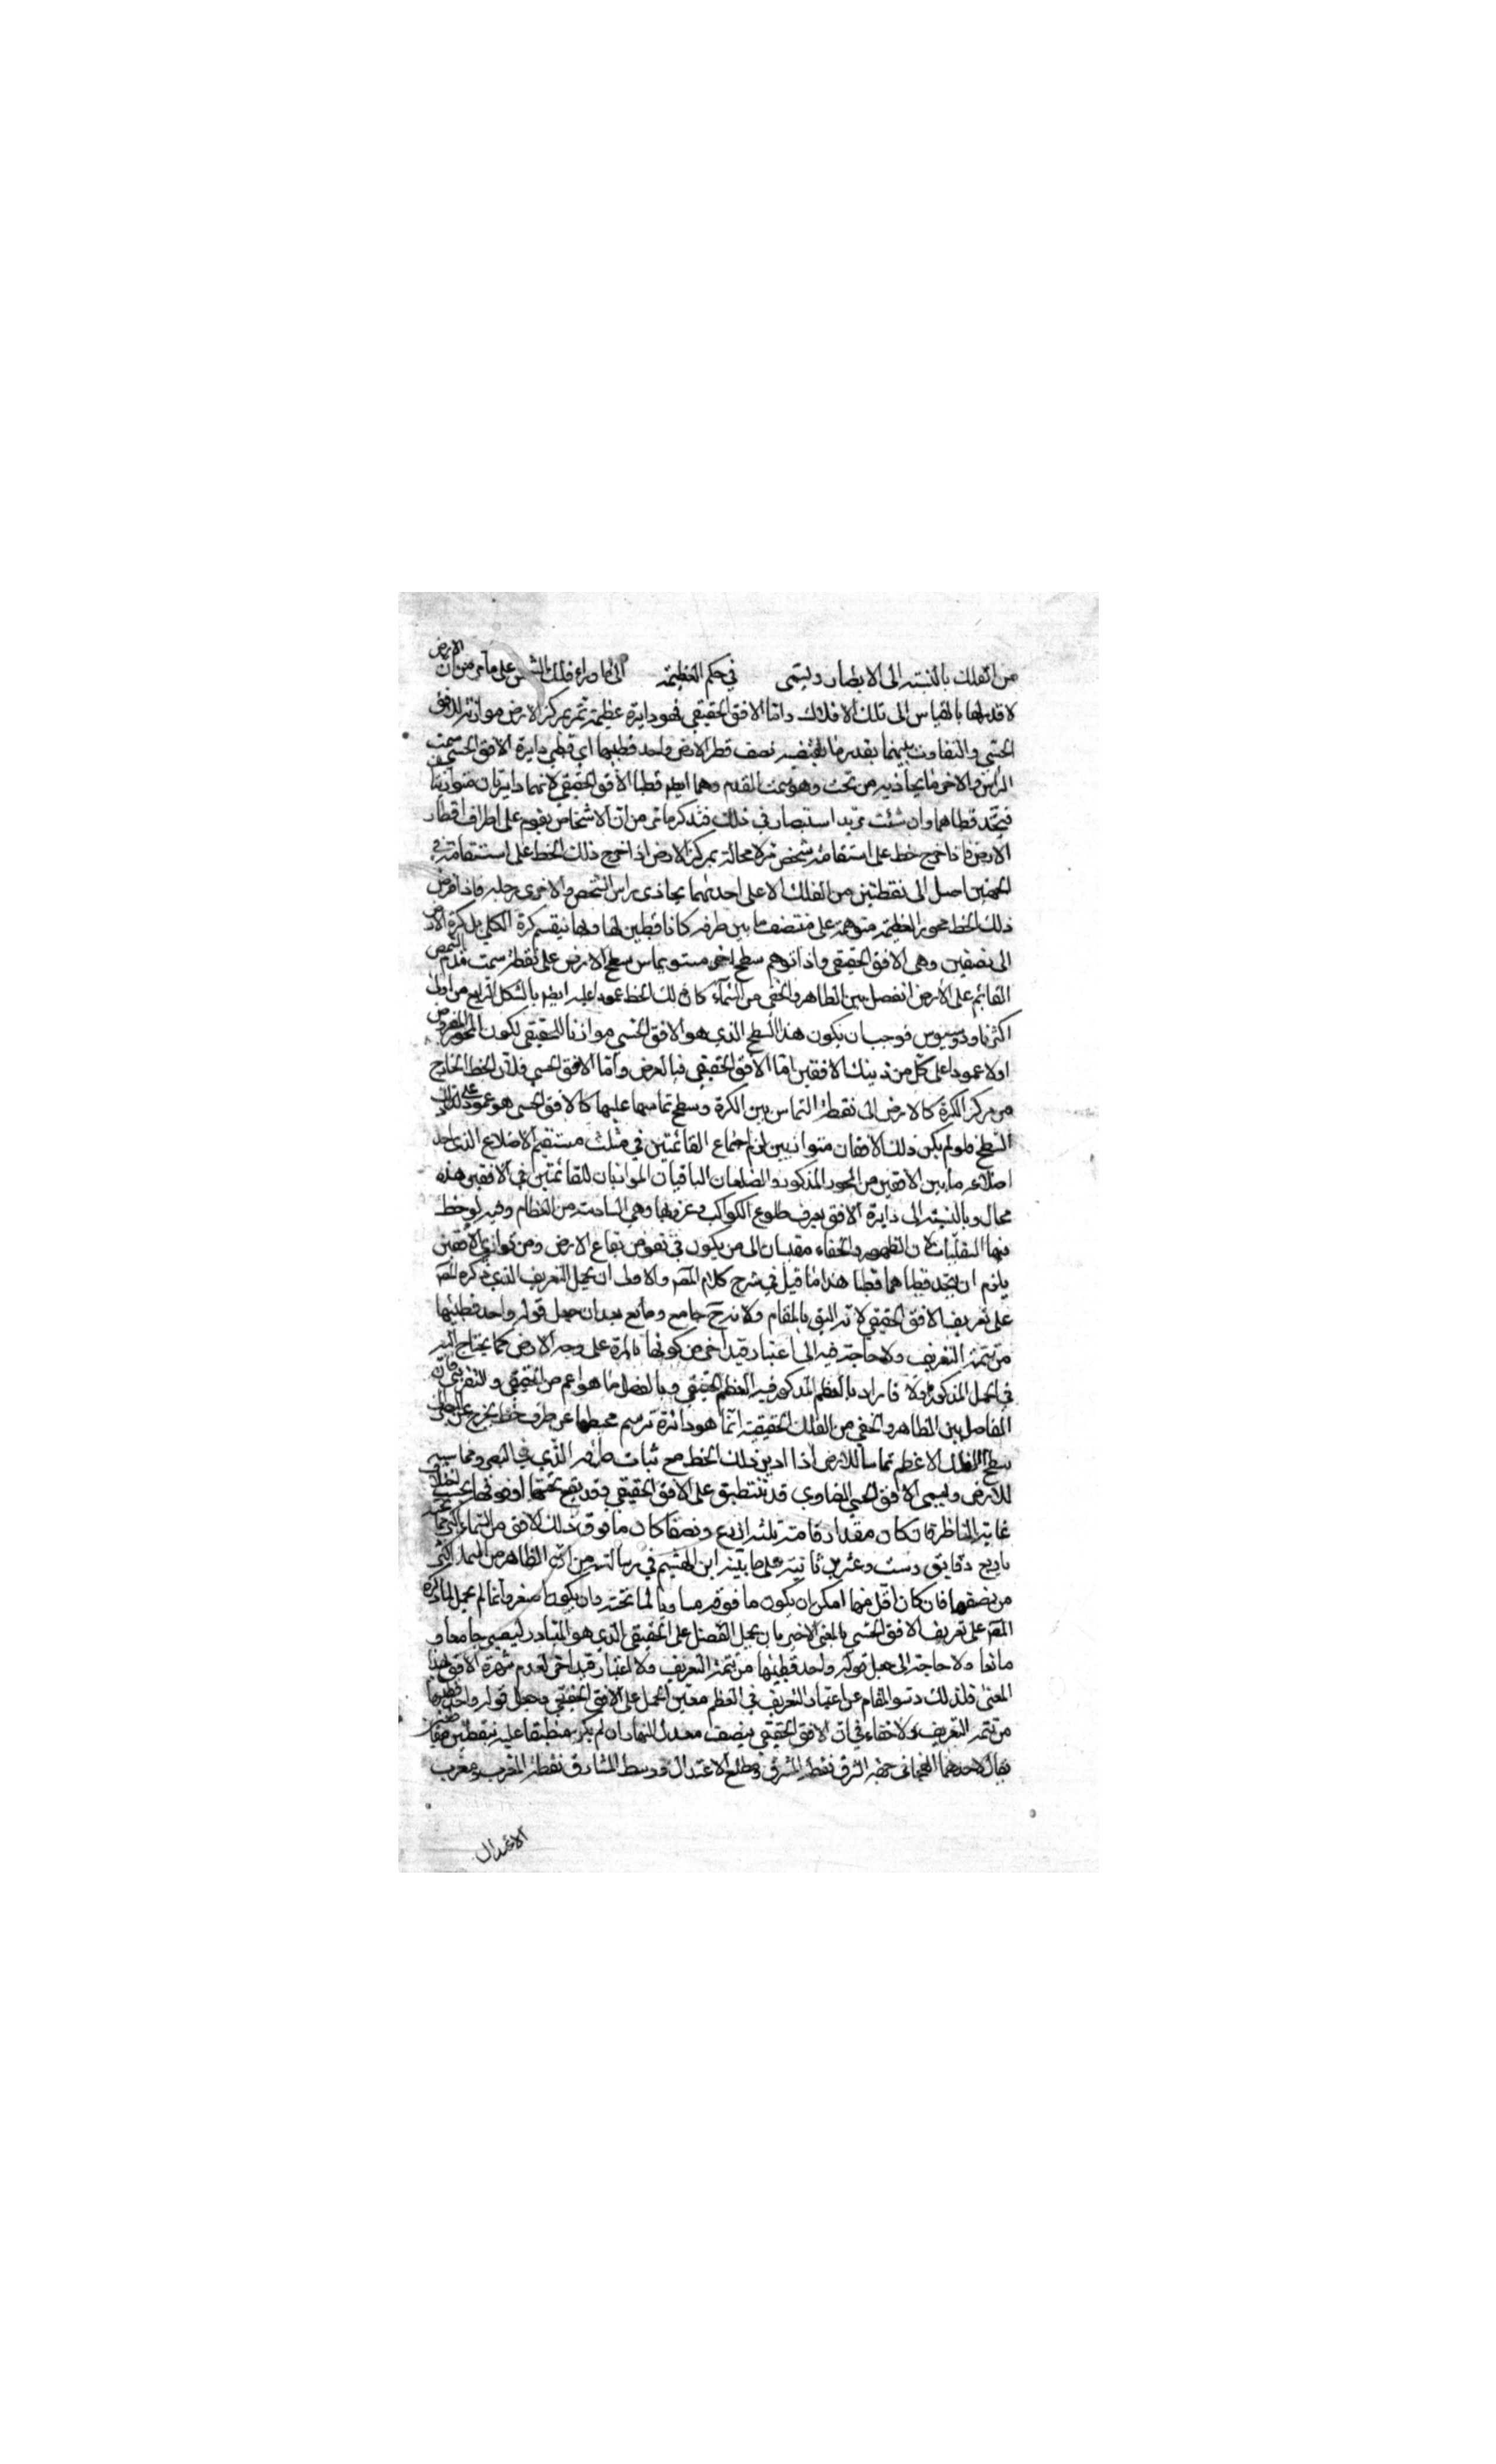 من الفلك بالنسبة الى الابصار وليتمى في حكم العظيمة الى ما وراء فلك الشمس على ما مر من ان الارض
لا قدر لها بالقياس الى تلك الافلاك واما الافق الحقيقي فهو دايرة عظيمة تمر بمركز الارض موازية للافق
الحسّي والتفاوت بينهما بقدر ما يقتضيه نصف قطر الارض واحد قطبيها اي قطبي دايرة الافق الحسي سمت
الراس والاخر ما يحاذيه من تحت وهو سمت القدم وهما ايضا قطبا الافق الحقيقي لانهما دايرتان متوازيتان
فيتحد قطباهما وان شئت مزيد استبصار في ذلك فتذكر ما مر من ان الاشخاص يقوم على اطراف اقطار
الارض فاذا خرج خط على استقامة شخص مر لا محالة بمركز الارض اذا خرج ذلك الخط على استقامته في
الجهتين اصل الى نقطتين من الفلك الاعلى احديهما يحاذى براس الشخص والاخرى برجله فاذا فرض
ذلك الخط محورا لعظيمة متوهمة على منتصف ما بين طرفيه كانا قطبين لها وبها ينقسم كرة الكل بل كرة الارض
الى نصفين وهى الافق الحقيقي واذا توهم سطح اخر مستو يماس سطح الارض على نقطة سمت قدم الشخص
القائم على الارض انفصل بين الظاهر والخفي من السماء كان ذلك الخط عمودا عليه ايضا بالشكل الرابع من اولى
اكر ثاوذوسيوس فوجب ان يكون هذا السطح الذي هو الافق الحسي موازيا للحقيقي لكون المحور المفروض
اولا عمودا على كل من ذينك الافقين اما الافق الحقيقي فبالفرض واما الافق الحسي فلان الخط الخارج
من مركز الكرة كالارض الى نقطة التماس بين الكرة وسطح تماسها عليها كالافق الحسي هو عمود على ذلك
السطح فلو لم يكن ذلك الافقان متوازيين لزم اجتماع القائمتين في مثلث مستقيم الاضلاع الذي احد
اضلاعه ما بين الافقين من المحور المذكور والضلعان الباقيان الموازيان للقائمتين في الافقين هذه
محال وبالنسبة الى دايرة الافق يعرف طلوع الكواكب وغروبها وهي السادسة من العظام وفيه لوحظ
فيها التقلبات لان الظهور والخفاء مقيسان الى من يكون في بقعة من بقاع الارض ومن توازي الافقين
يلزم ان يتحد قطباهما قطبا هذا ما قيل في شرح كلام المص والاولى ان يحمل التعريف الذي ذكره المص
على تعريف الافق الحقيقي لانه اليق بالمقام ولانه ح جامع ومانع بعد ان جعل قوله واحد قطبيها
من تتمة التعريف ولا حاجة فيه الى اعتبار قيد اخر من كونها بالمرة على وجه الارض كما يحتاج اليه
في الحمل المذكور اولا فاراد بالعظم المذكور فيه العظم الحقيقي وبالفصل ما هو اعم من الحقيقي والتقريبي فان
الفاصل بين الظاهر والخفي من الفلك الحقيقية انما هو دائرة ترسم محيطها عن طرف خط يخرج من البصر الى
سطح الفلك الاعظم مماسا للارض اذا ادير ذلك الخط مع ثبات طرفه الذي في البصر ومماسته
للارض ويسمى الافق الحسي الفاوي قد تنطبق على الافق الحقيقي وقد يقع تحتها او فوقها بحسب اختلاف
غاية الناظر فان كان مقدار قامته ثلثه اذرع ونصفا كان ما فوق ذلك الافق من السماء اكثر مما تحته
باربع دقايق وست وعشرين ثانية على ما بينه ابن الهيثم في رسالته من ان الظاهر من السماء اكثر
من نصفها فان كان اقل منها امكن ان يكون ما فوقه مساويا لما تحته وان يكون اصغر وانما لم يحمل ما ذكره
المص على تعريف الافق الحسي بالمعنى الاخير بان يحمل الفصل على الحقيقي الذي هو المتبادر ليصير جامعا و
مانعا ولا حاجة الى جعل قوله واحد قطبيها من تتمة التعريف ولا اعتبار قيد اخر لعدم شهرة الافق بهذا
المعنى فلذلك دسو المقام عن اعتبار التعريف في العظم معين الحمل على الافق الحقيقي وجعل قوله واحد قطبيها
من تتمة التعريف ولا خفاء في ان الافق الحقيقي ينصف معدل النهار ان لم يكن منطبقا عليه بنقطتين
يقال لاحدهما في جهة الشرق نقطة المشرق ومطلع الاعتدال ووسط المشارق نقطة المغرب ومغرب
الاعتدال